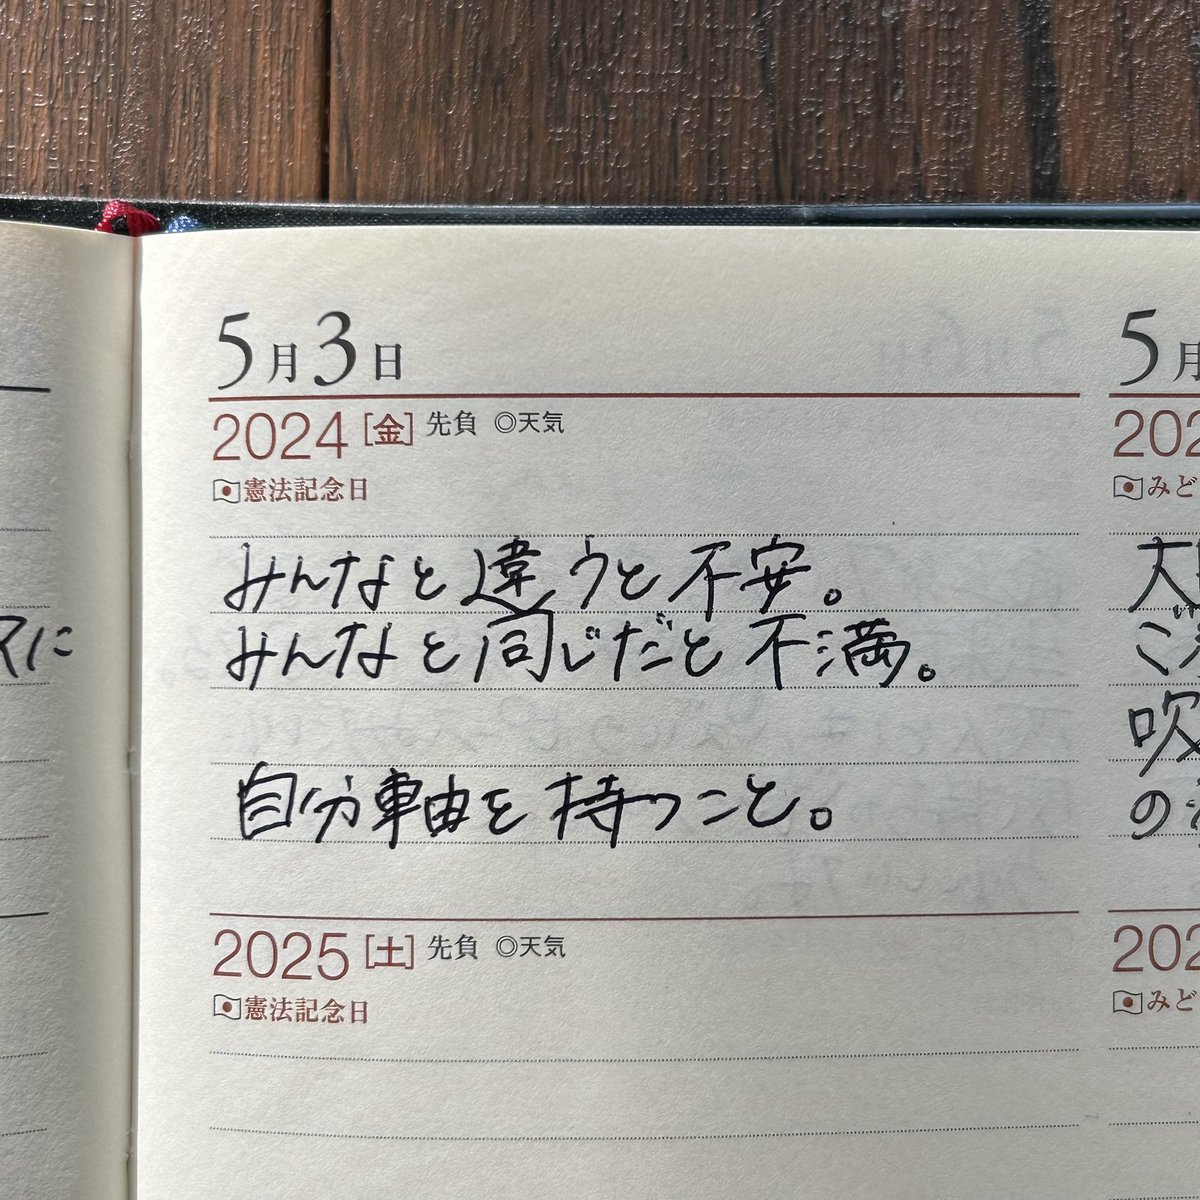 5月3日
2024 [金] 先負 ◎天気
憲法記念日
みんなと違うと不安。
みんなと同じだと不満。
自分車由を持つこと。
2025 [土] 先負 ◎天気
憲法記念日
に
5月
202
みど
大
ご
吹
の
202
みど